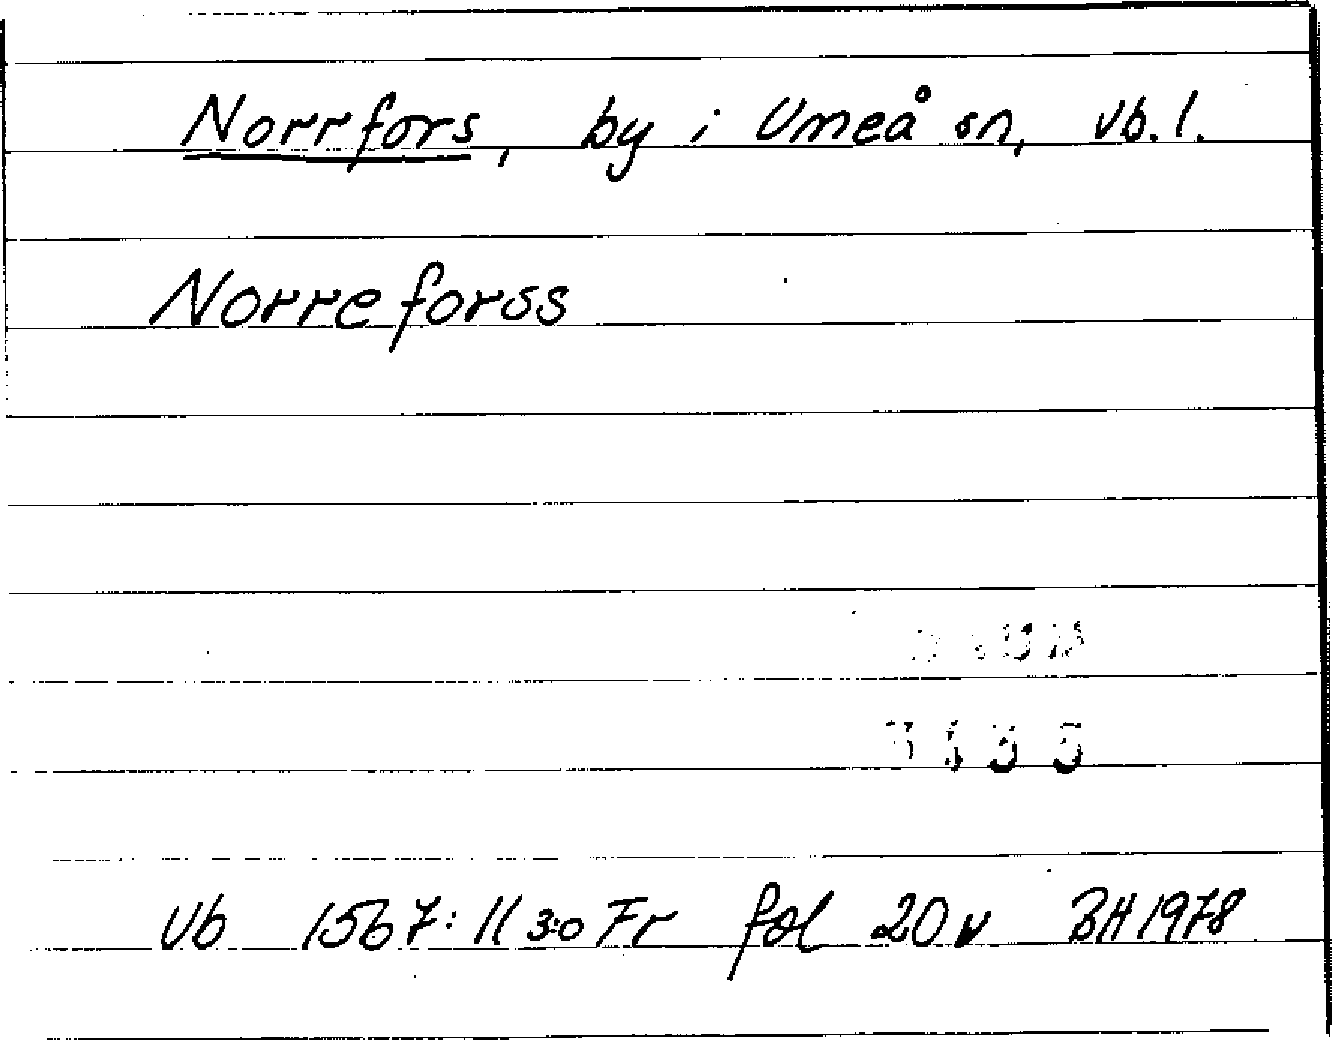 Norrfors, by i Umeå sn, Vb. l.
Norreforss
Vb 1567:11 3:0 Fr fol 20 v BH 1978